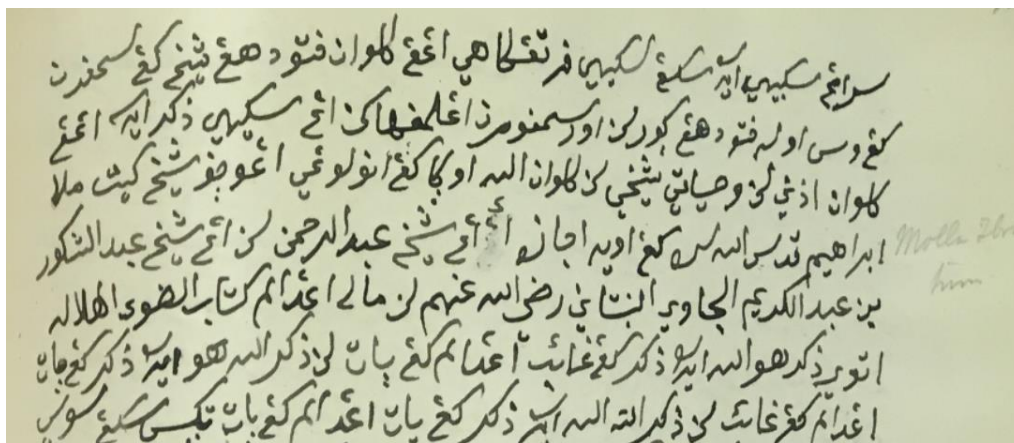 سكيهي فرتڠكاهي اڠڠ كلوان فتودهڠ شيخ كڠ سمفرن
كڠ وس اوله فتودهڠ اڠلمفهاكن اڠ سكيهي ذكر ايكو اڠڠ
كلوان اذني لن وصياتي شيخي لن كلوان الله اوكا كڠ انولوڠي اڠوجف شيخ كيت ملا
ابراهيم قدس الله سره كڠ اويه اجازه اڠ شيخ عبد الرحمن لن اڠ شيخ عبد الشكور
بن عبد الكريم الجاوي البنتاني رضي الله عنهم لن مالي اڠدالم كتاب الضوء الهلال
اتوي ذكر هو الله ايكو ذكر كڠ غائب اڠدالم كڠ پات لن ذكر الله هو ايكو ذكر كڠ پات
اڠدالم كڠ غائب لن ذكر الله الله ايكو ذكر كڠ پات اڠدالم كڠ پات
Molla Ibra
him